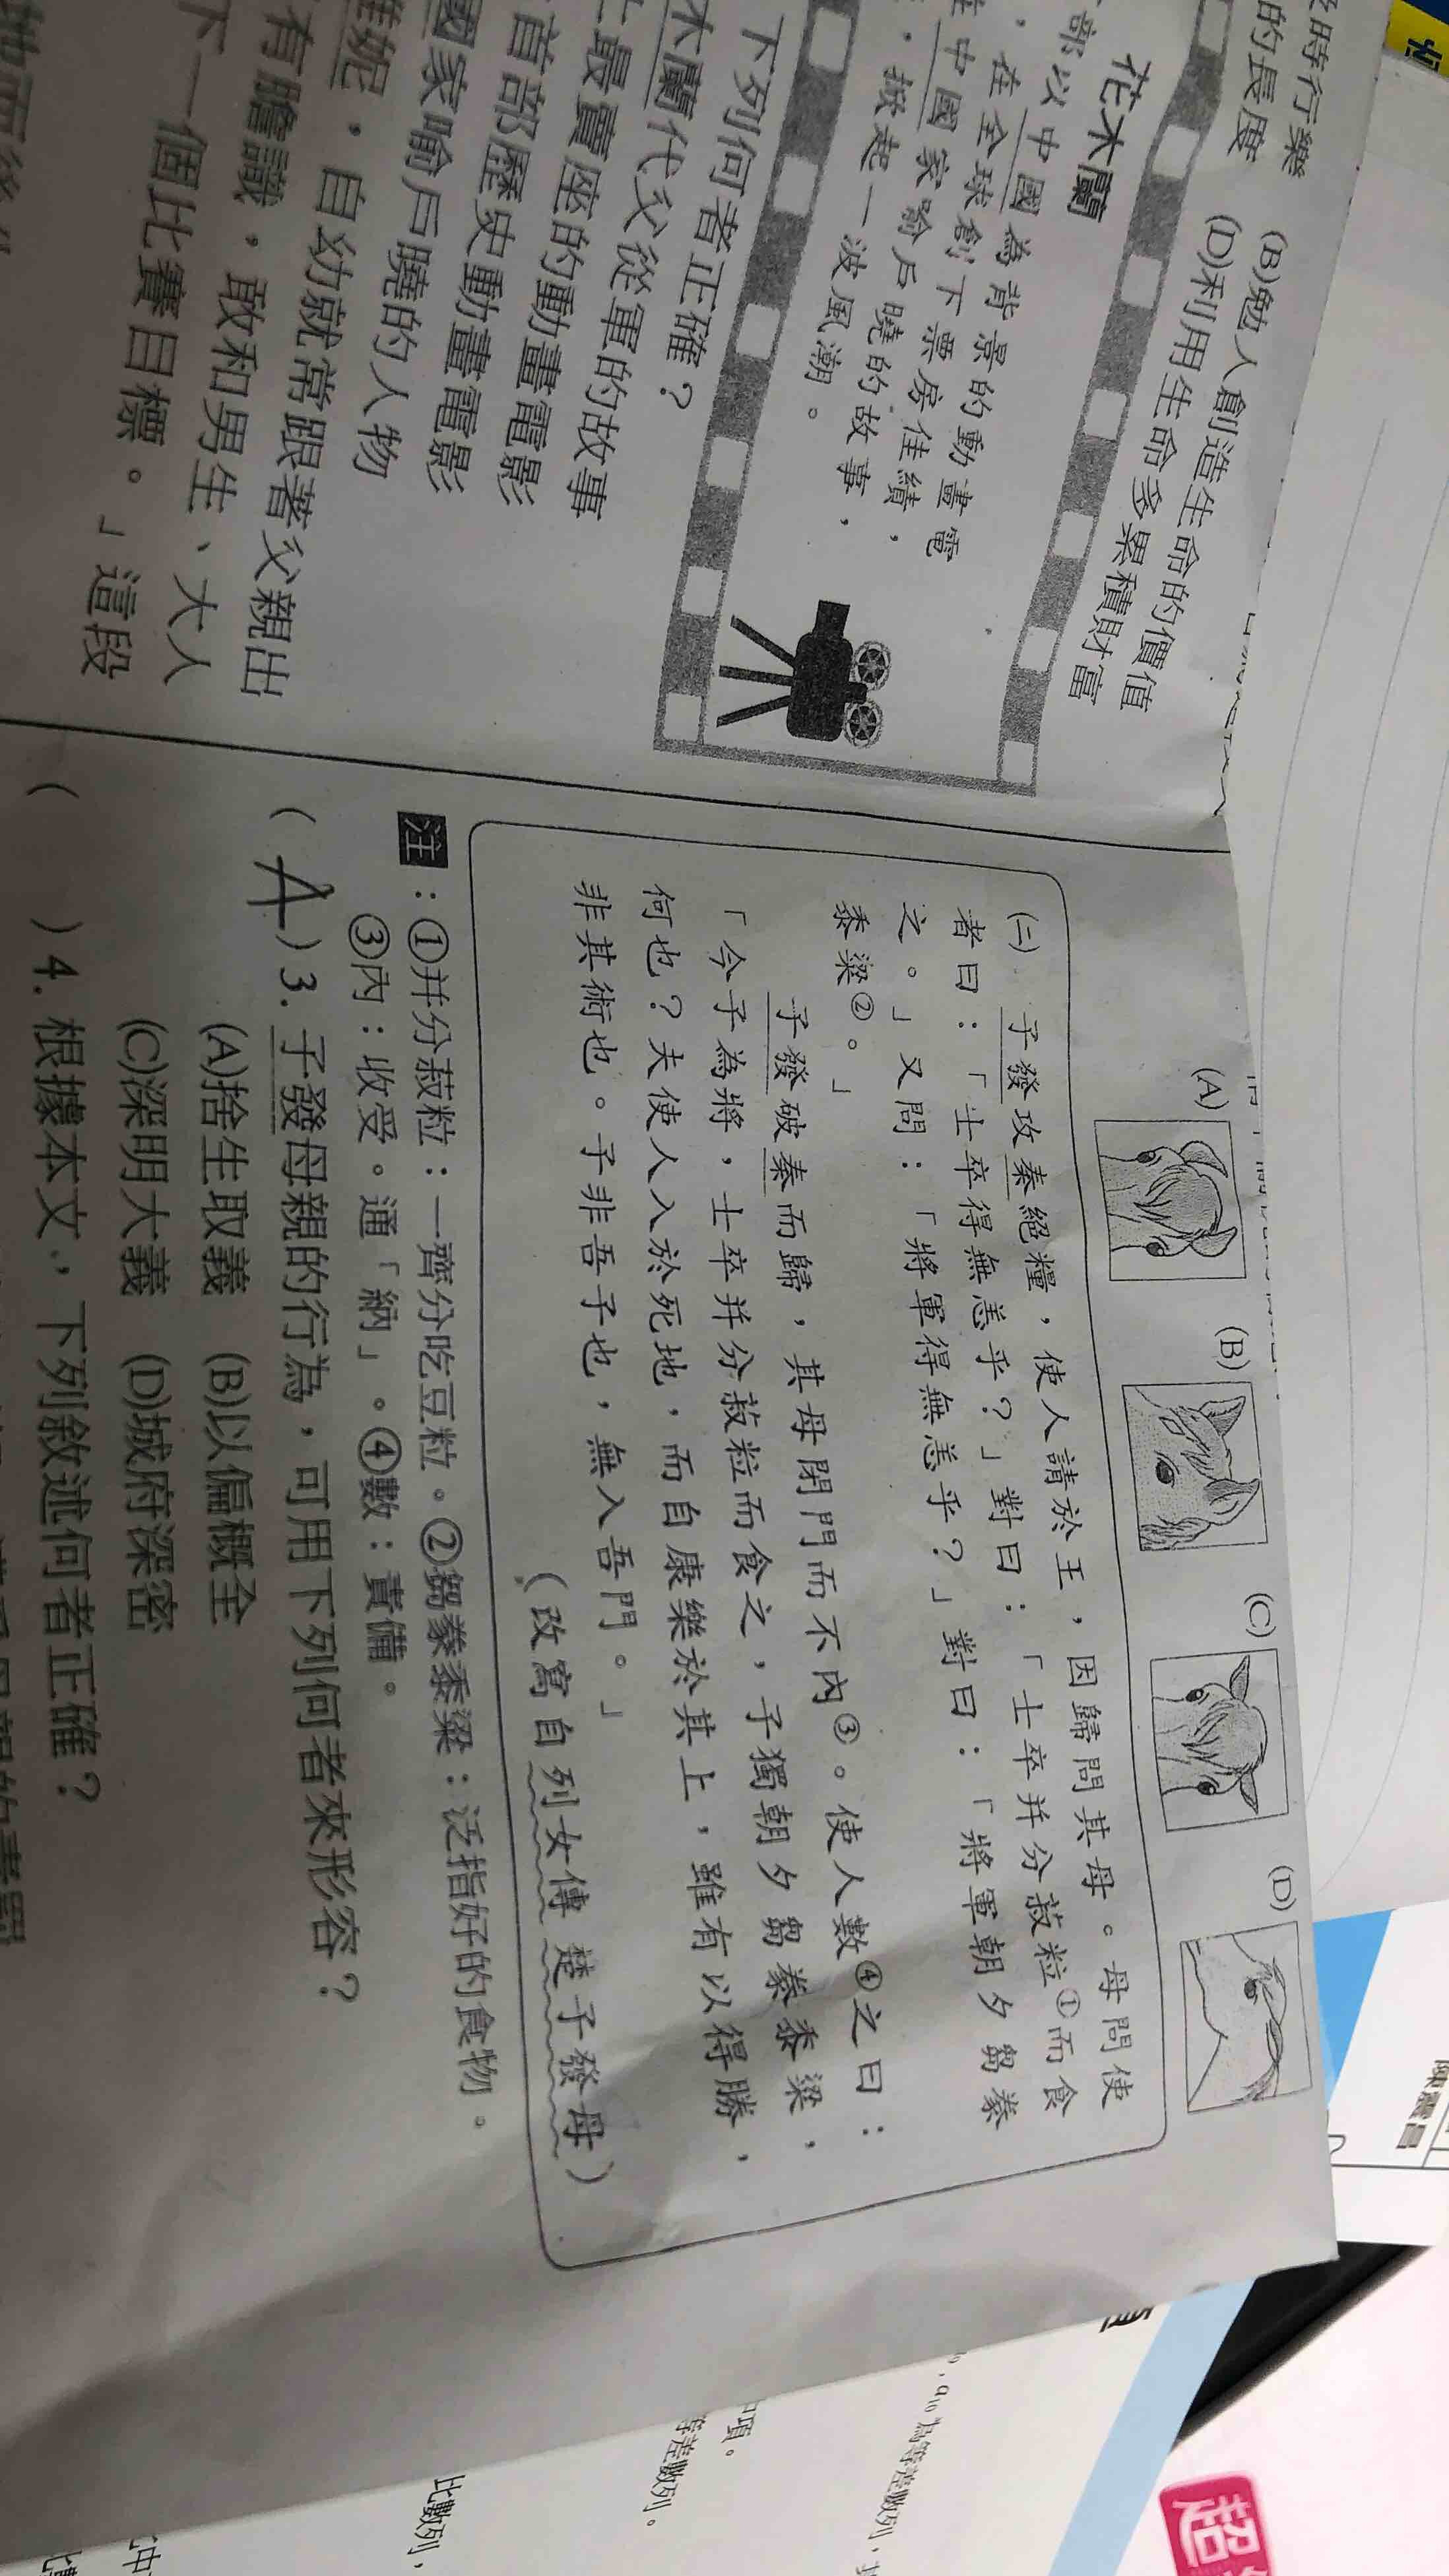 及時行樂 (B)勉人創造生命的價值
的長度 (D)利用生命多累積財富
花木蘭
部以中國為背景的動畫電
，在全球創下票房佳績，
在中國家喻戶曉的故事，
，掀起一波風潮。
下列何者正確？
木蘭代父從軍的故事
上最賣座的動畫電影
首部歷史動畫電影
國家喻戶曉的人物
雅妮，自幼就常跟著父親出
有膽識，敢和男生、大人
下一個比賽目標。」這段
(A) (B) (C) (D)
(二) 子發攻秦絕糧，使人請於王，因歸問其母。母問使
者曰：「士卒得無恙乎？」對曰：「士卒并分菽粒①而食
之。」又問：「將軍得無恙乎？」對曰：「將軍朝夕芻豢
黍粱②。」
子發破秦而歸，其母閉門而不內③。使人數④之曰：
「今子為將，士卒并分菽粒而食之，子獨朝夕芻豢黍粱，
何也？夫使人入於死地，而自康樂於其上，雖有以得勝，
非其術也。子非吾子也，無入吾門。」
（改寫自列女傳 楚子發母）
注：①并分菽粒：一齊分吃豆粒。②芻豢黍粱：泛指好的食物。
③內：收受。通「納」。④數：責備。
(A)3.子發母親的行為，可用下列何者來形容？
(A)捨生取義 (B)以偏概全
(C)深明大義 (D)城府深密
( )4.根據本文，下列敘述何者正確？
為等差數列，
中項。
等差數列。
比數列，
超